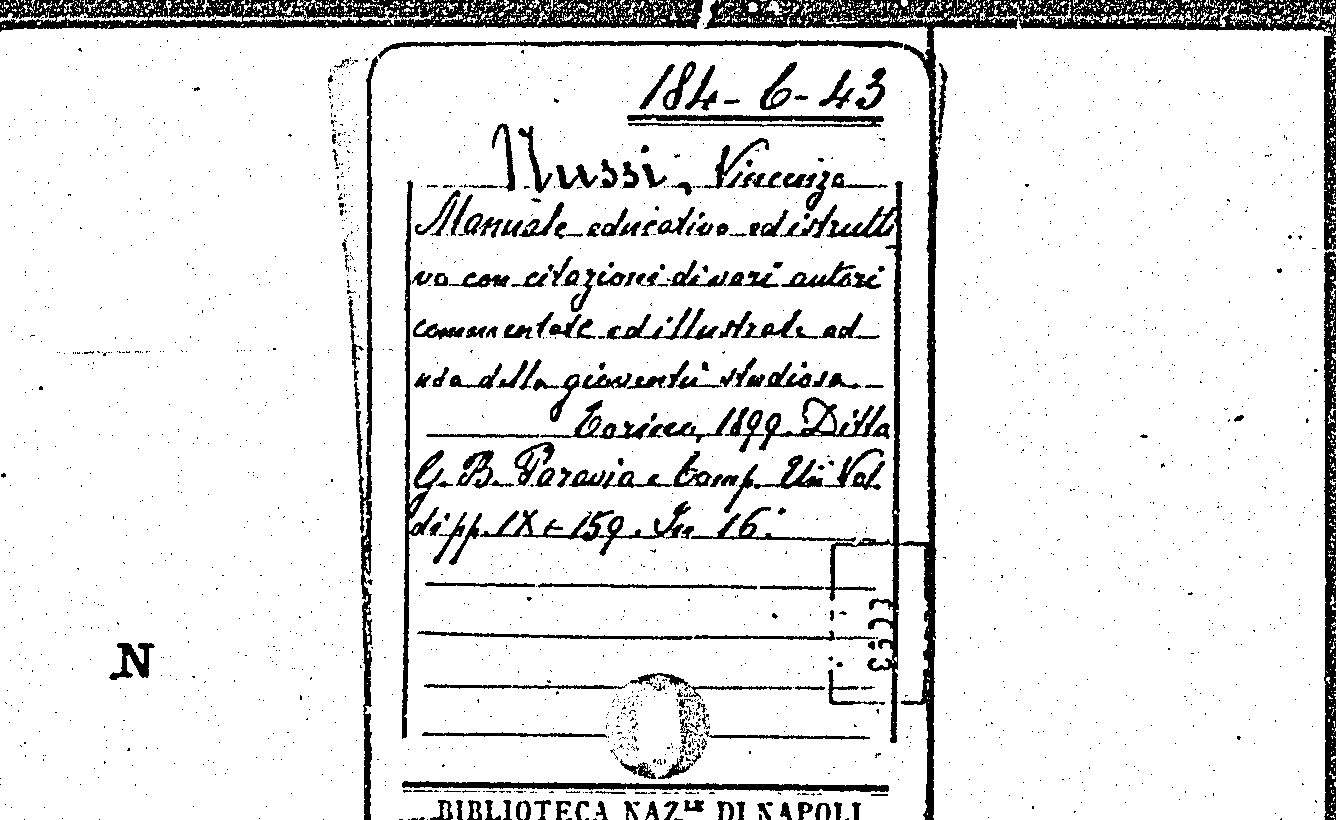 184-6-43
Nussi, Vincenzo
Manuale educativo ed istrutti
vo con citazioni di varî autori
commentate ed illustrate ad
uso della gioventù studiosa.
Torino, 1899. Ditta
G. B. Paravia e Comp. Un Vol.
di pp. IX + 159. In 16°.
N
BIBLIOTECA NAZ.LE DI NAPOLI